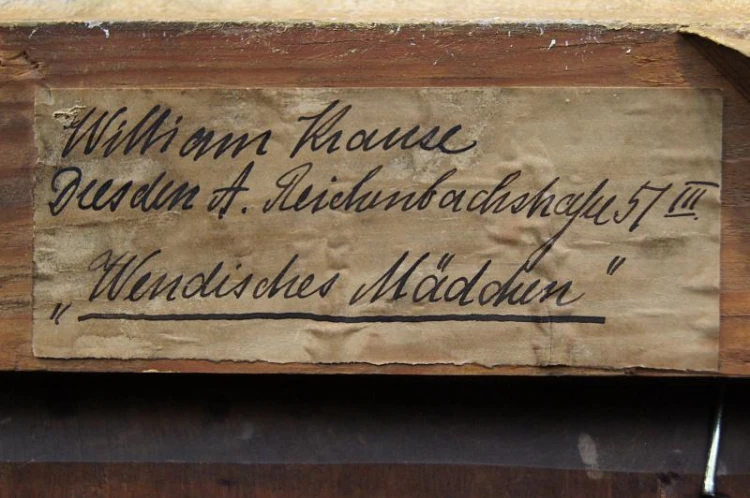 William Krause
Dresden A. Reichenbachstraße 51 III.
„Wendisches Mädchen"